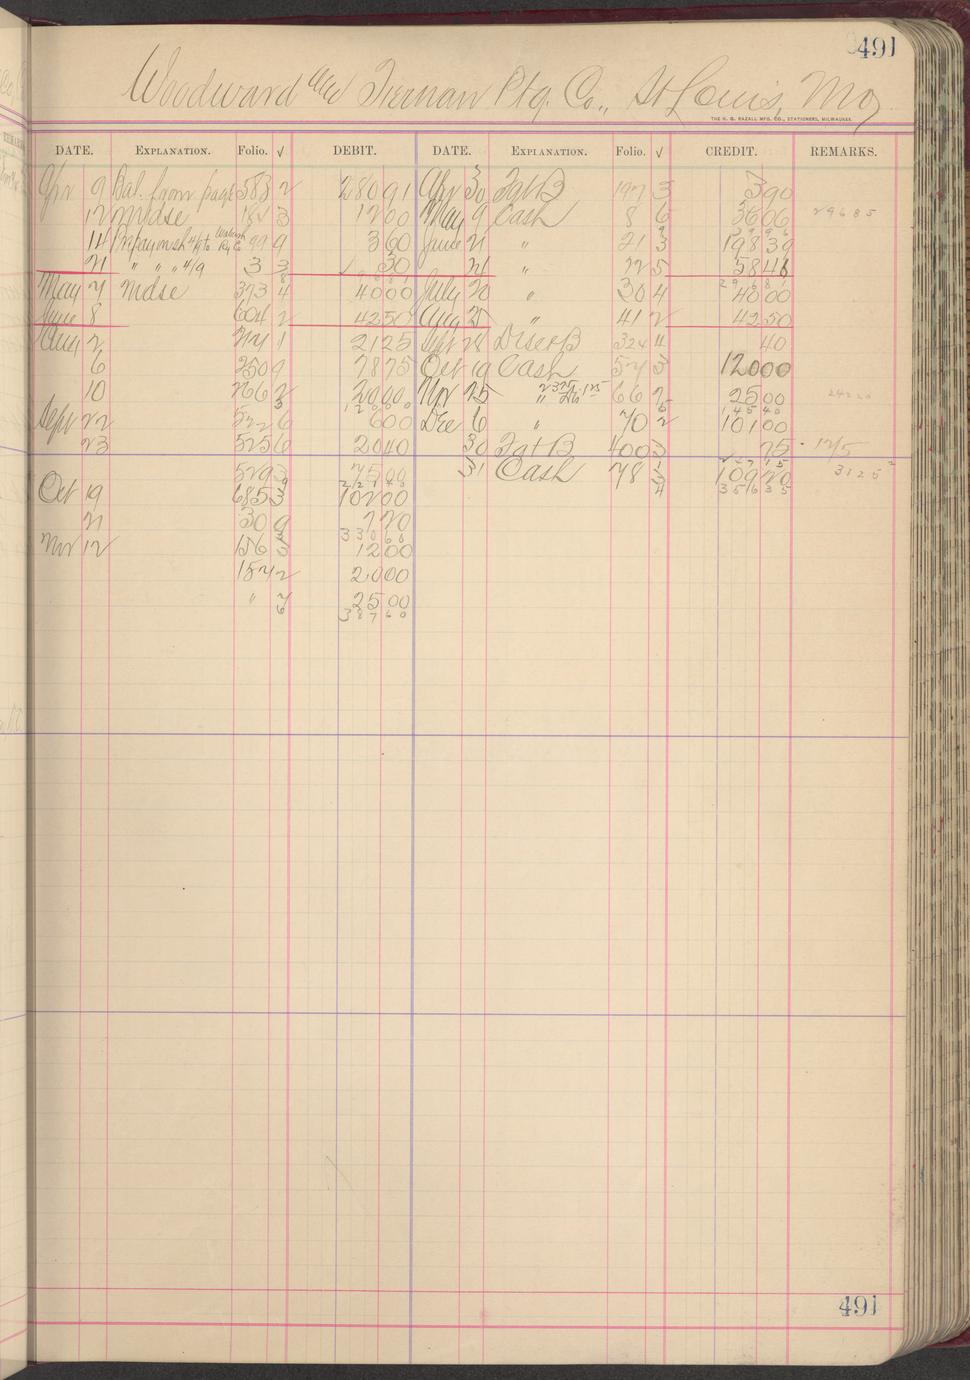 491
Woodward and Tiernan Ptg. Co., St Louis, Mo
THE H. G. RAZALL MFG. CO., STATIONERS, MILWAUKEE.
DATE. EXPLANATION. Folio. √ DEBIT. DATE. EXPLANATION. Folio. √ CREDIT. REMARKS.
Apr 9 Bal. from page 583 2 280 91 Apr 30 Frt B 197 3 3 90
12 Mdse 182 3 12 00 May 9 Cash 8 6 36 06 29685
14 Prepay on sh 4/7 to Wabash Ry Co 99 9 3 60 June 21 " 21 3 198 39
21 " " " 4/9 3 3 30 24 " 22 5 58 46
May 7 Mdse 393 4 40 00 July 20 " 30 4 48 00
June 8 604 2 42 50 Aug 25 " 41 2 42 50
Aug 2 221 1 21 25 Sept 28 Disct B 324 4 40
6 250 9 78 75 Oct 19 Cash 57 3 120 00
10 266 2 20 00 Nov 25 " 66 2 25 00
Sept 22 522 6 6 00 Dec 6 " 70 2 101 00
23 525 6 20 40 30 Frt B 400 3 75 12/5
529 3 75 00 31 Cash 78 3 109 20 3125
Oct 19 685 3 102 00 356 35
21 30 9 7 20
330 60
Nov 12 156 3 12 00
157 2 20 00
" 7 25 00
387 60
491